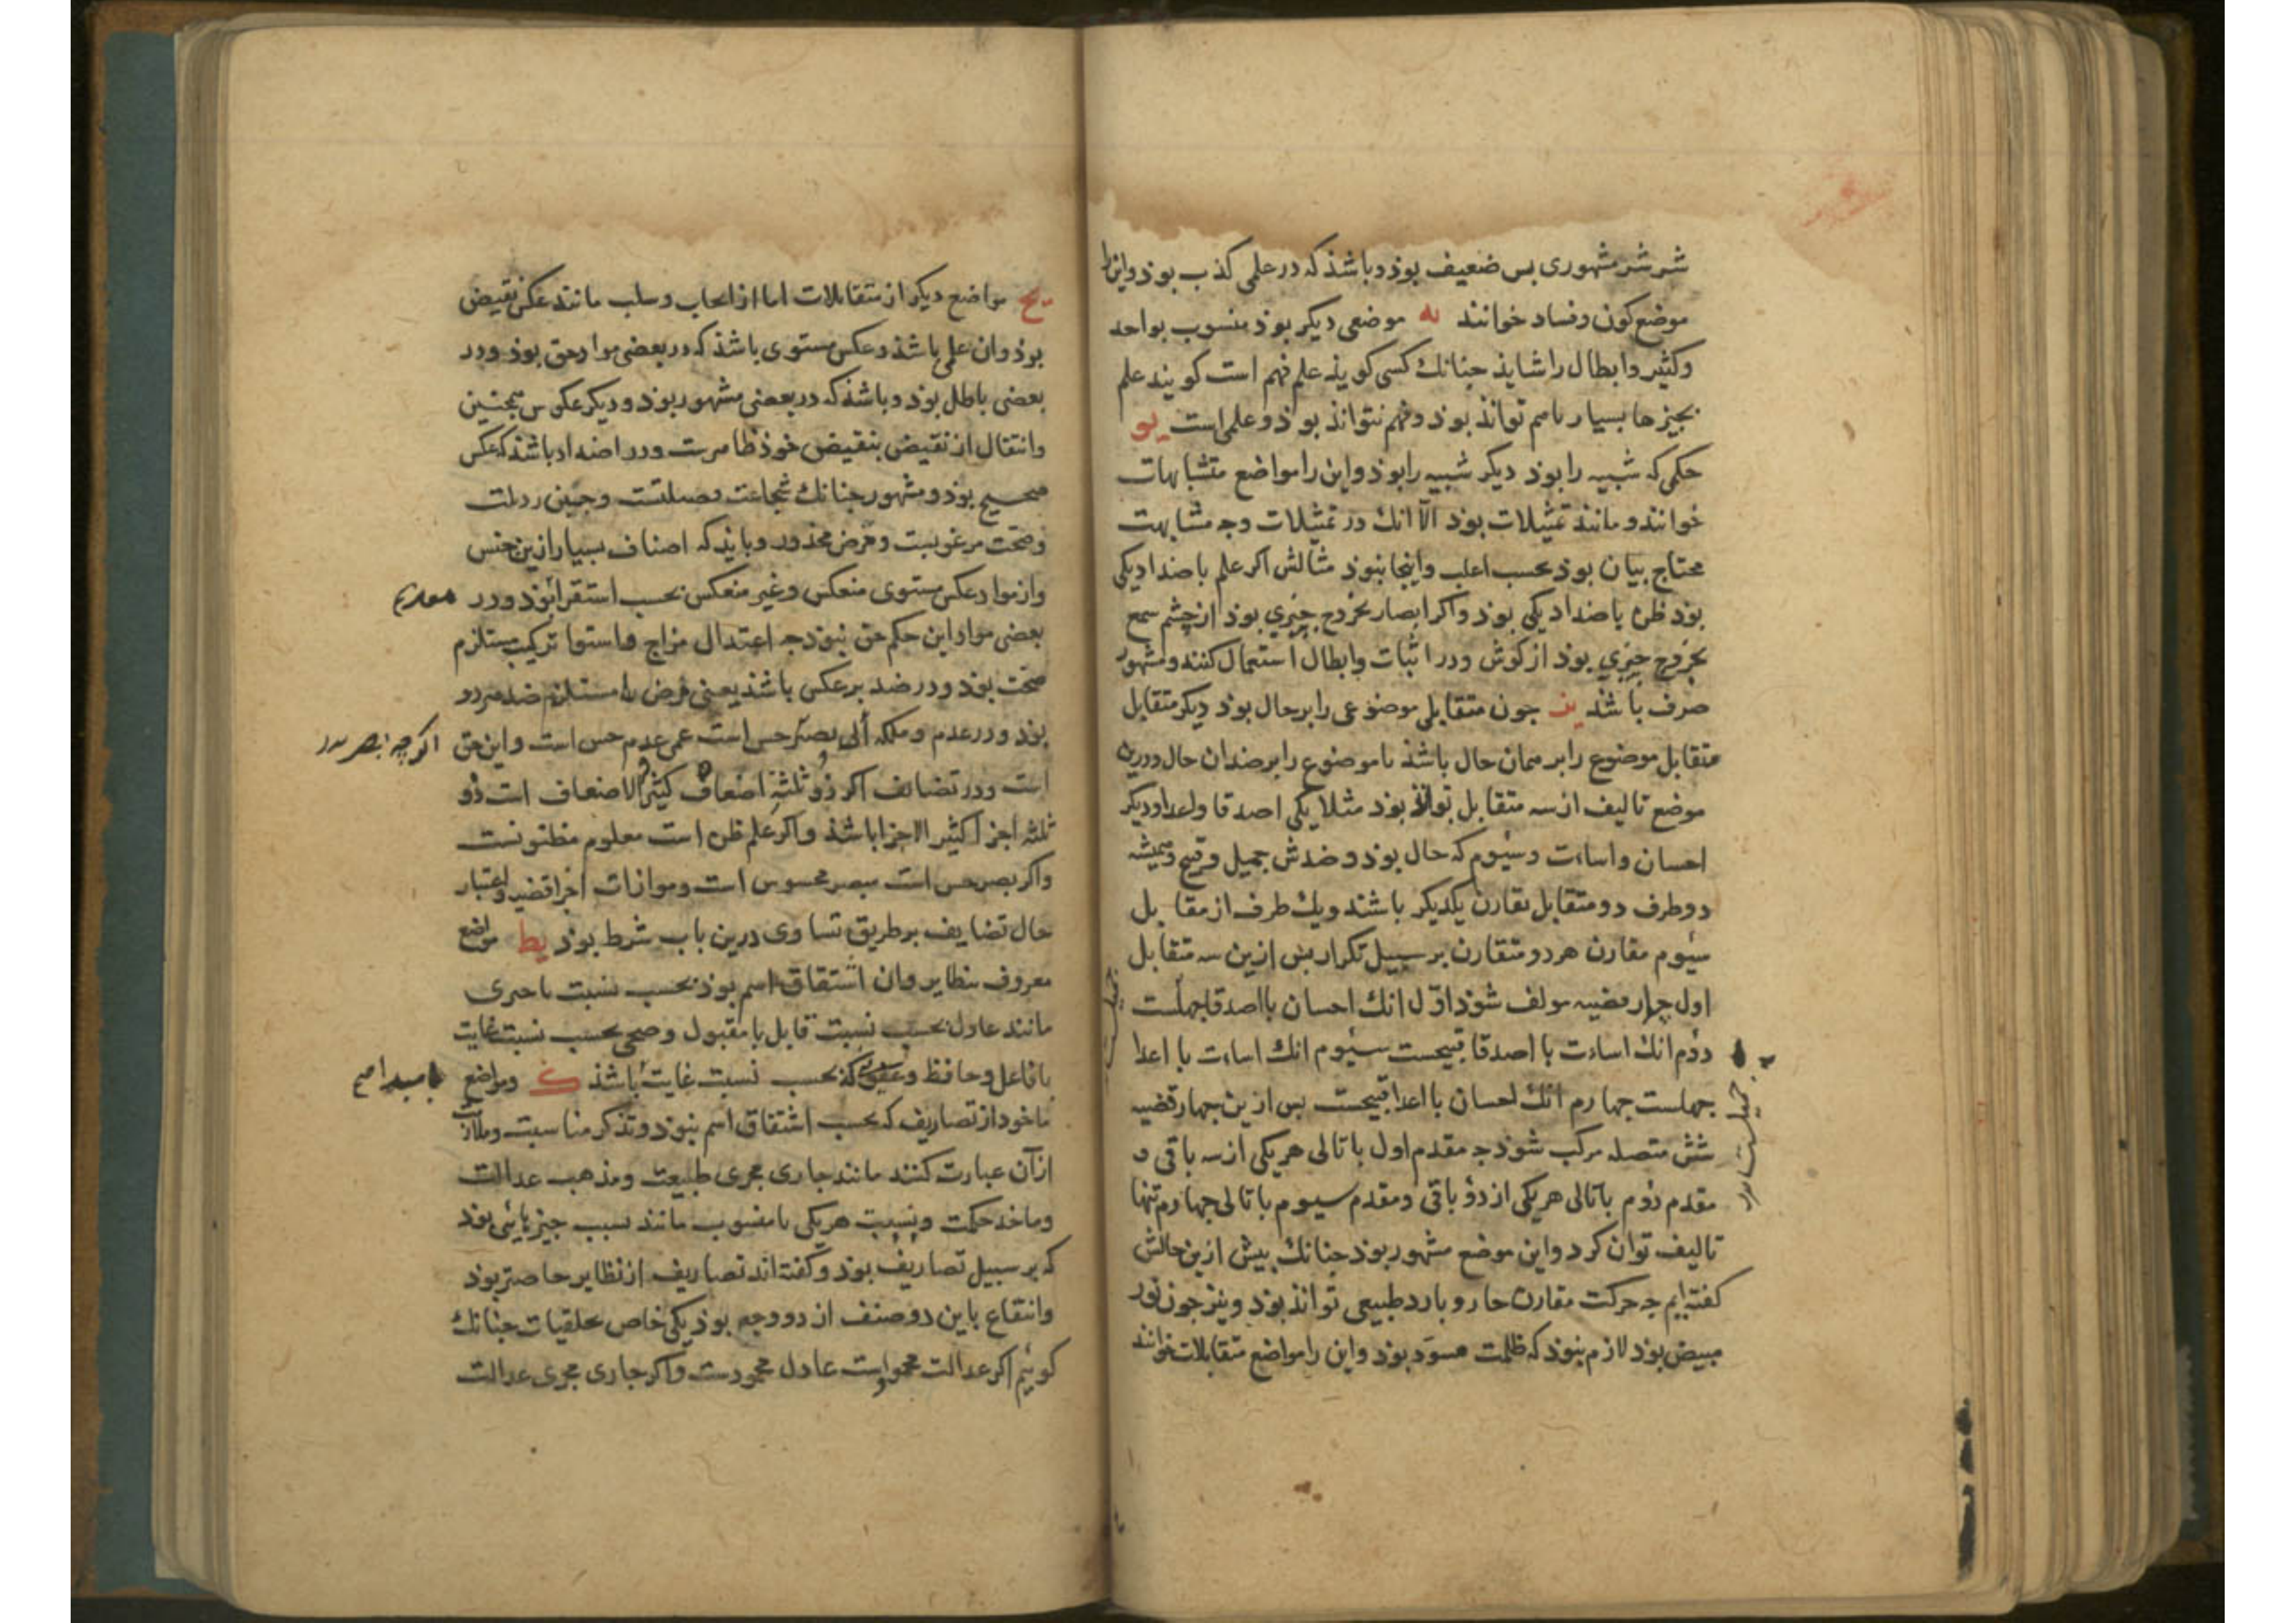 شر شر مشهوری بس ضعیف بوذ و باشذ که در علمی کذب بوذ و این را
موضع کون و فساد خوانند یه موضعی دیکر بوذ منسوب بواحد
وکثیر و ابطال را شایذ جنانك کسی کویذ علم فهم است کویند علم
بجیزها بسیار باهم تواند بوذ و فهم نتواند بوذ و علمی است یو
حکمی که شبیه را بوذ دیکر شبیه را بوذ و این را مواضع متشابهات
خوانند و مانند تمثیلات بوذ الّا انك در تمثیلات وجه مشابهت
محتاج بیان بوذ بحسب اغلب و اینجا نبوذ مثالش اکر علم باضداد یکی
بوذ ظن باضداد یکی بوذ و اکر ابصار بخروج چیزی بوذ از چشم سمع
بخروج چیزی بوذ از کوش و در اثبات و ابطال استعمال کنند و مشهور
صرف باشذ یز جون متقابلی موضوعی را بر حال بوذ دیکر متقابل
متقابل موضوع را بر همان حال باشذ یا موضوع را بر ضد ان حال و درین
موضع تالیف از سه متقابل تواند بوذ مثلا یکی اصدقا و اعدا و دیکر
احسان و اساءت و سیوم که حال بوذ و ضدش جمیل و قبیح و همیشه
دو طرف دو متقابل مقارن یکدیکر باشند و یك طرف از مقابل
سیوم مقارن هر دو متقارن بر سبیل تکرار بس ازین سه متقابل
اول چهار قضیه مولف شوذ اوّل انك احسان با اصدقا جمیلست
دوّم انك اساءت با اصدقا قبیحست سیوم انك اساءت با اعدا
جمیلست جهارم انك احسان با اعدا قبیحست بس ازین جهار قضیه
شش متصله مرکب شوذ جه مقدم اول با تالی هر یکی از سه باقی و
مقدم دوم با تالی هر یکی از دو باقی و مقدم سیوم با تالی جهارم تنها
تالیف توان کرد و این موضع مشهور بوذ جنانك بیش ازین حالش
کفته ایم جه حرکت مقارن حار و بارد طبیعی تواند بوذ و نیز جون نور
مبیض بوذ لازم نبوذ که ظلمت مسوّد بوذ و این را مواضع متقابلات خوانند
یح مواضع دیکر از متقابلات اما از ایجاب و سلب مانند عکس نقیض
بوذ و ان علمی باشذ و عکس مستوی باشذ که در بعضی مواد حق بوذ و در
بعضی باطل بوذ و باشذ که در بعضی مشهور بوذ و دیکر عکوس همجنین
و انتقال از نقیض بنقیض خوذ ظاهرست و در اضداد باشذ که عکس
صحیح بوذ و مشهور جنانك شجاعت فضیلتست و جبن رذیلت
و صحت مرغوبست و مرض محذور و بایذ که اصناف بسیار ازین جنس
و از مواد عکس مستوی منعکس و غیر منعکس بحسب استقرا بوذ و در
بعضی مواد این حکم حق نبوذ جه اعتدال مزاج و استوا ترکیب مستلزم
صحت بوذ و در ضد بر عکس باشذ یعنی مرض را مستلزم ضد هر دو
بوذ و در عدم و ملکه الی بصر حس است عمی عدم حس است و این حق
اکر چه بصر
است و در تضایف اکر ذو ثلثه اضعاف کثیر الاضعاف است ذو
ثلثه اجزا کثیر الاجزا باشذ و اکر علم ظن است معلوم مظنونست
و اکر بصر حس است مبصر محسوس است و موازات اجزا قضیه و اعتبار
حال تضایف بر طریق تساوی درین باب شرط بوذ یط مواضع
معروف بنظایر و ان اشتقاق اسم بوذ بحسب نسبت با جیزی
مانند عادل بحسب نسبت قابل با مقبول و صحی بحسب نسبت غایت
با فاعل و حافظ و که بحسب نسبت غایت باشذ ک و مواضع
ماخوذ از تصاریف که بحسب اشتقاق اسم نبوذ و تذکر مناسبت و ملازمت
از آن عبارت کنند مانند جاری مجری طبیعت و مذهب عدالت
و ماخذ حکمت و نسبت هر یکی با منسوب مانند نسبت جیزهایی بوذ
که بر سبیل تصاریف بوذ و کفته اند تصاریف از نظایر خاصتر بوذ
و انتفاع باین دو صنف از دو وجه بوذ یکی خاص بخلقیات جنانك
کوئیم اکر عدالت محمودست عادل محمودست و اکر جاری مجری عدالت